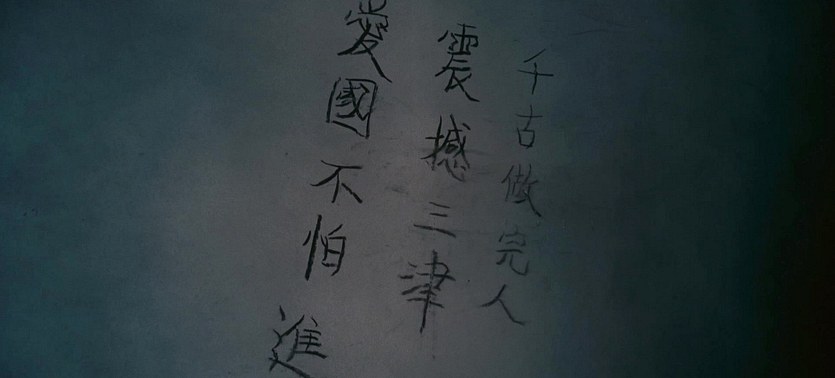 千古做完人
震撼三津
愛國不怕進